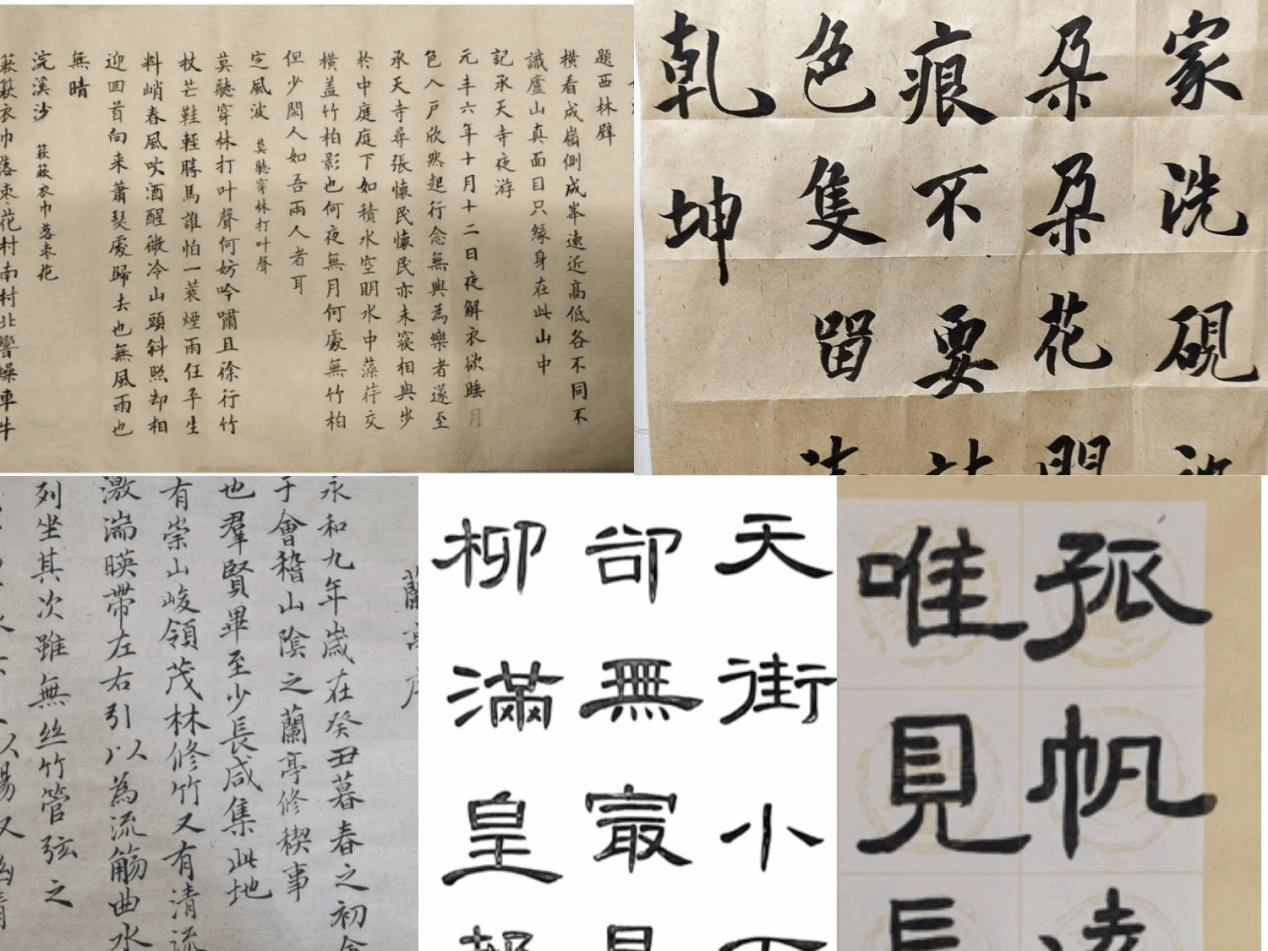 題西林壁
橫看成嶺側成峯遠近高低各不同不
識廬山真面目只緣身在此山中
記承天寺夜游
元丰六年十月十二日夜解衣欲睡月
色入戶欣然起行念無與為樂者遂至
承天寺尋張懷民懷民亦未寢相與步
於中庭庭下如積水空明水中藻荇交
橫盖竹柏影也何夜無月何處無竹柏
但少閑人如吾兩人者耳
定風波 莫聽穿林打叶聲
莫聽穿林打叶聲何妨吟嘯且徐行竹
杖芒鞋輕勝馬誰怕一蓑煙雨任平生
料峭春風吹酒醒微冷山頭斜照却相
迎回首向来蕭瑟處歸去也無風雨也
無晴
浣溪沙 簌簌衣巾落枣花
簌簌衣巾落枣花村南村北響繰車牛
家洗硯
朶朶花開
痕不要
色隻留
乾坤
蘭亭序
永和九年歲在癸丑暮春之初
于會稽山陰之蘭亭修稧事
也羣賢畢至少長咸集此地
有崇山峻領茂林修竹又有清流
激湍暎帶左右引以為流觴曲水
列坐其次雖無丝竹管弦之
天街小
卻無寂
柳滿皇
孤帆遠
唯見長